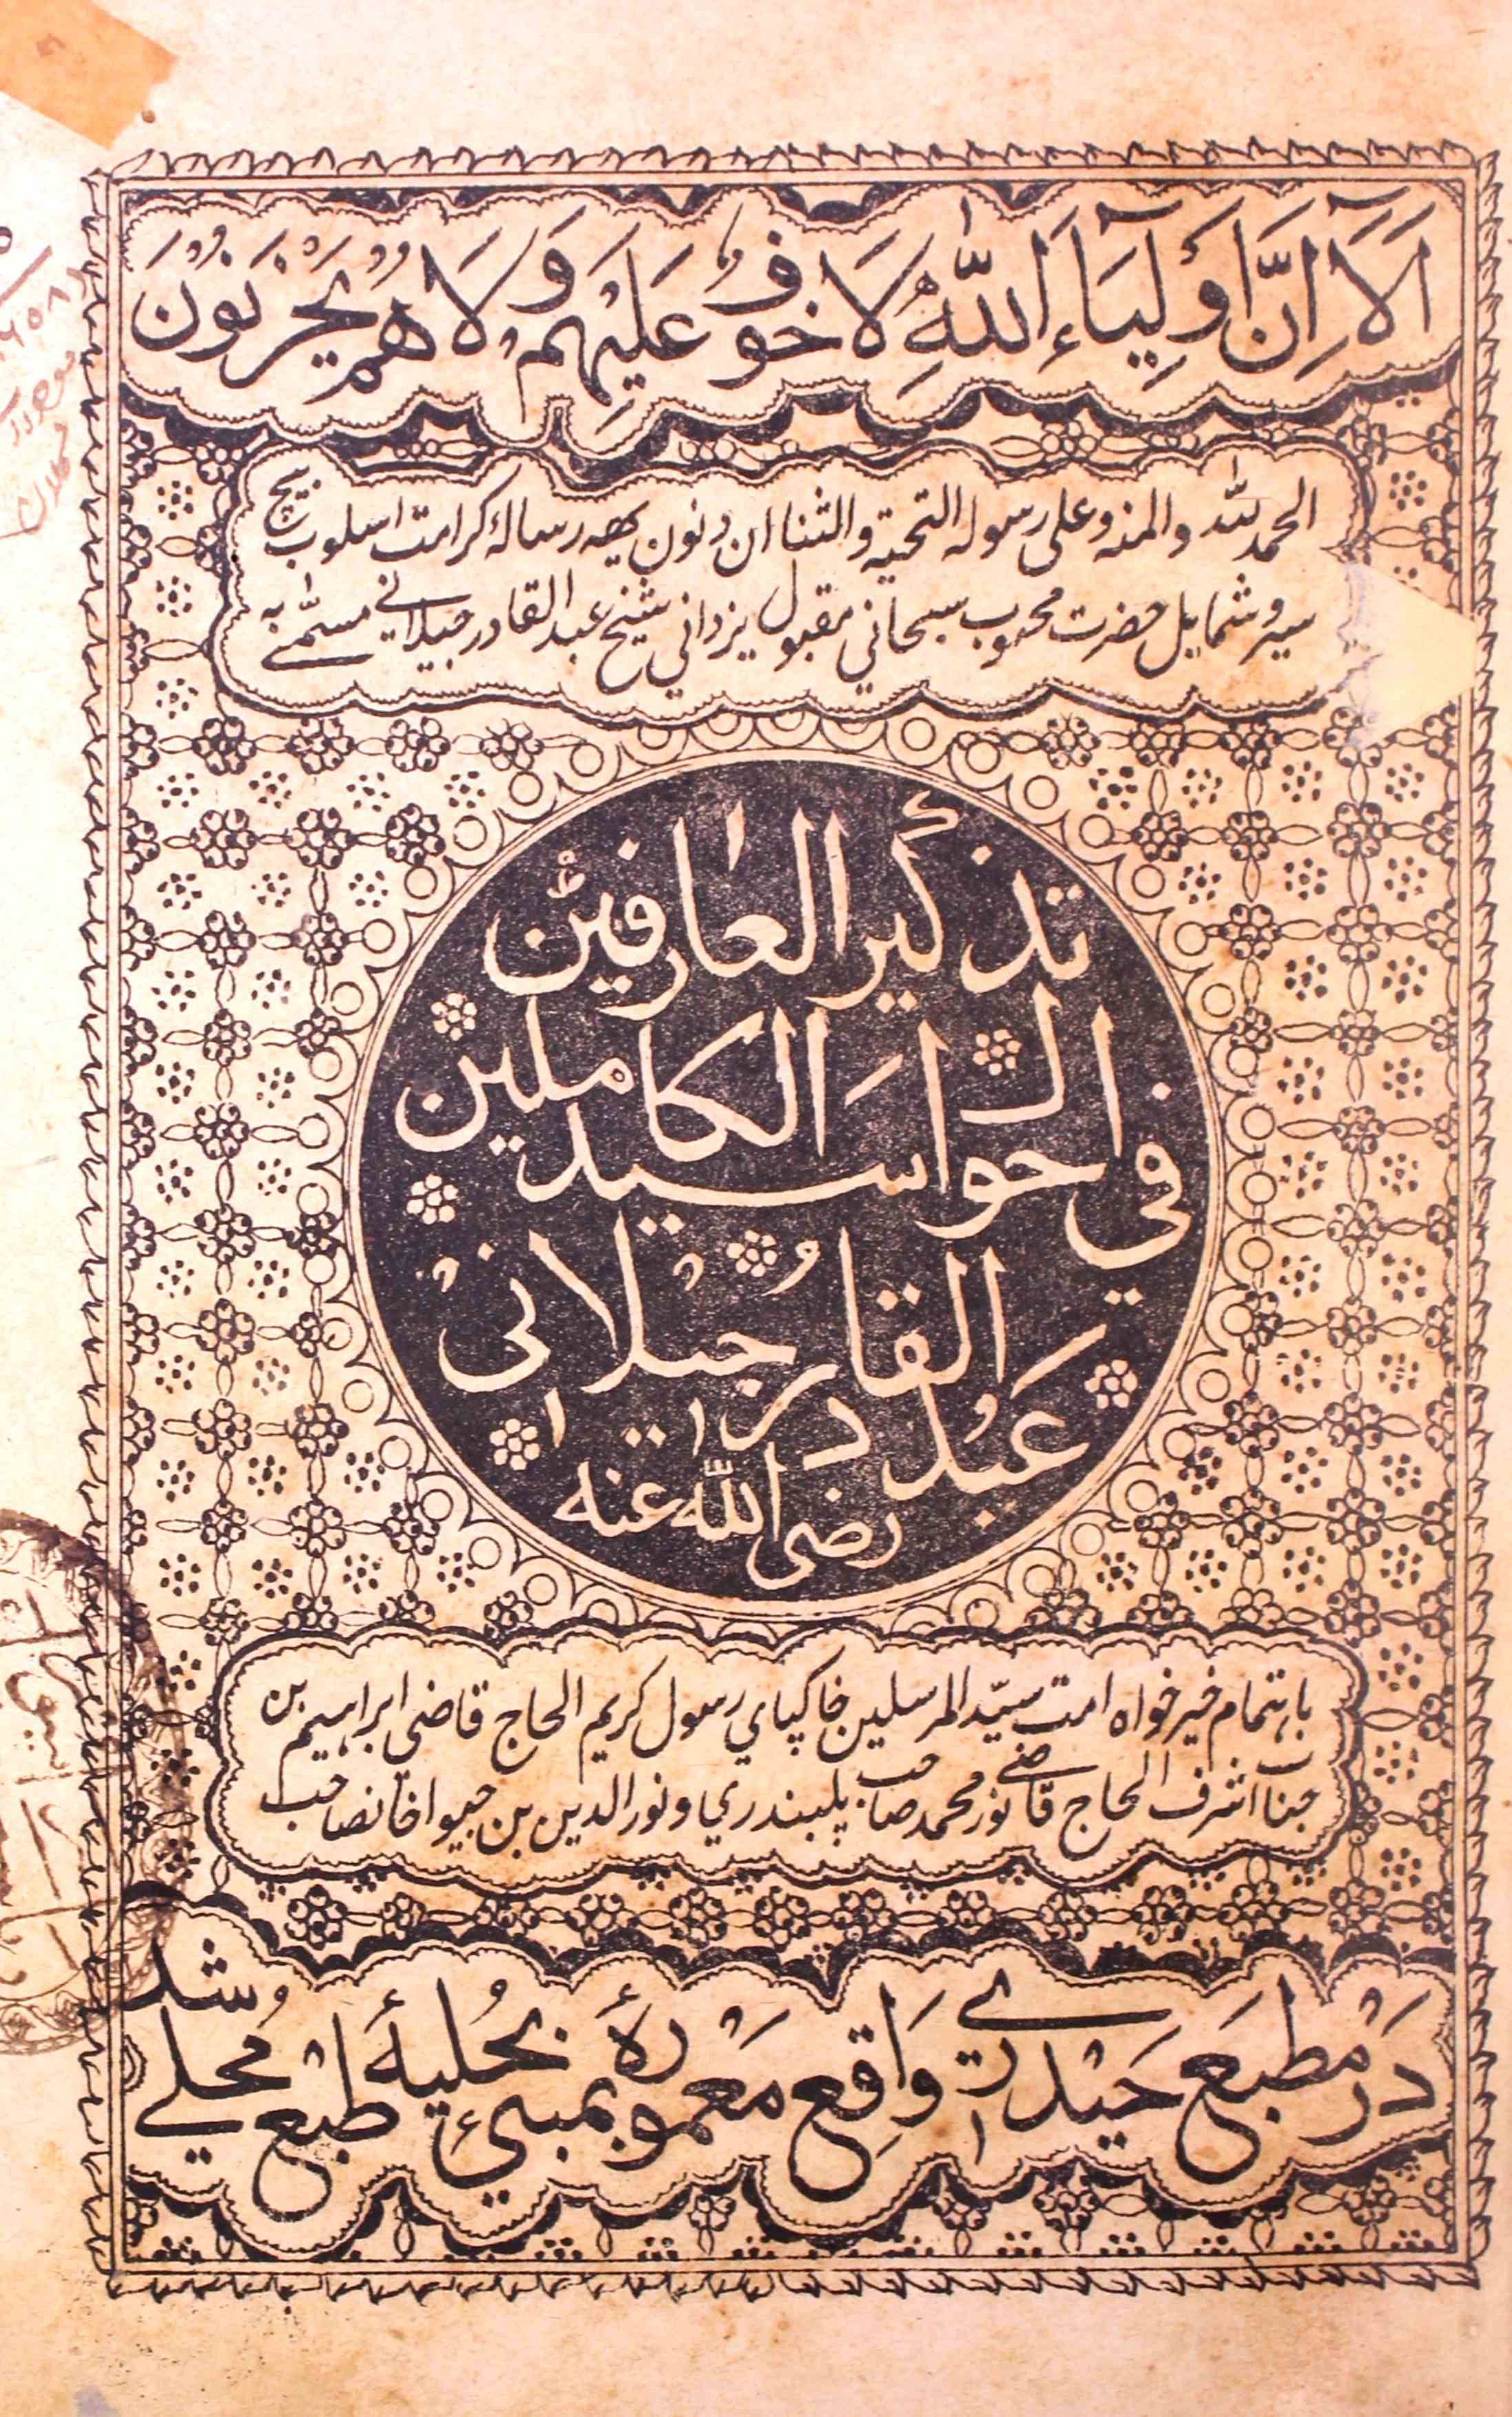 اَلَآ اِنَّ اَوْلِیَآءَ اللّٰهِ لَا خَوْفٌ عَلَیْهِمْ وَلَا هُمْ یَحْزَنُوْنَ
الحمد لله والمنه وعلی رسوله التحیته والثنا ان دنون یهه رساله کرامت اسلوب بیچ
سیر و شمایل حضرت محبوب سبحانی مقبول یزدانی شیخ عبد القادر جیلانی مسمّے به
تذکیر العارفین
في احوال سید الکاملین
عبد القادر جیلانی
رضی الله عنه
باہتمام خیر خواه امت سیّد المرسلین خاکپاي رسول کریم الحاج قاضی ابراہیم بن
جناب اشرف الحاج قاضے نور محمد صاحب پلبندري و نور الدین بن جیوا خانصاحب
در مطبع حیدرے واقع معمورۀ بمبئ بحلیۀ طبع محلے شد